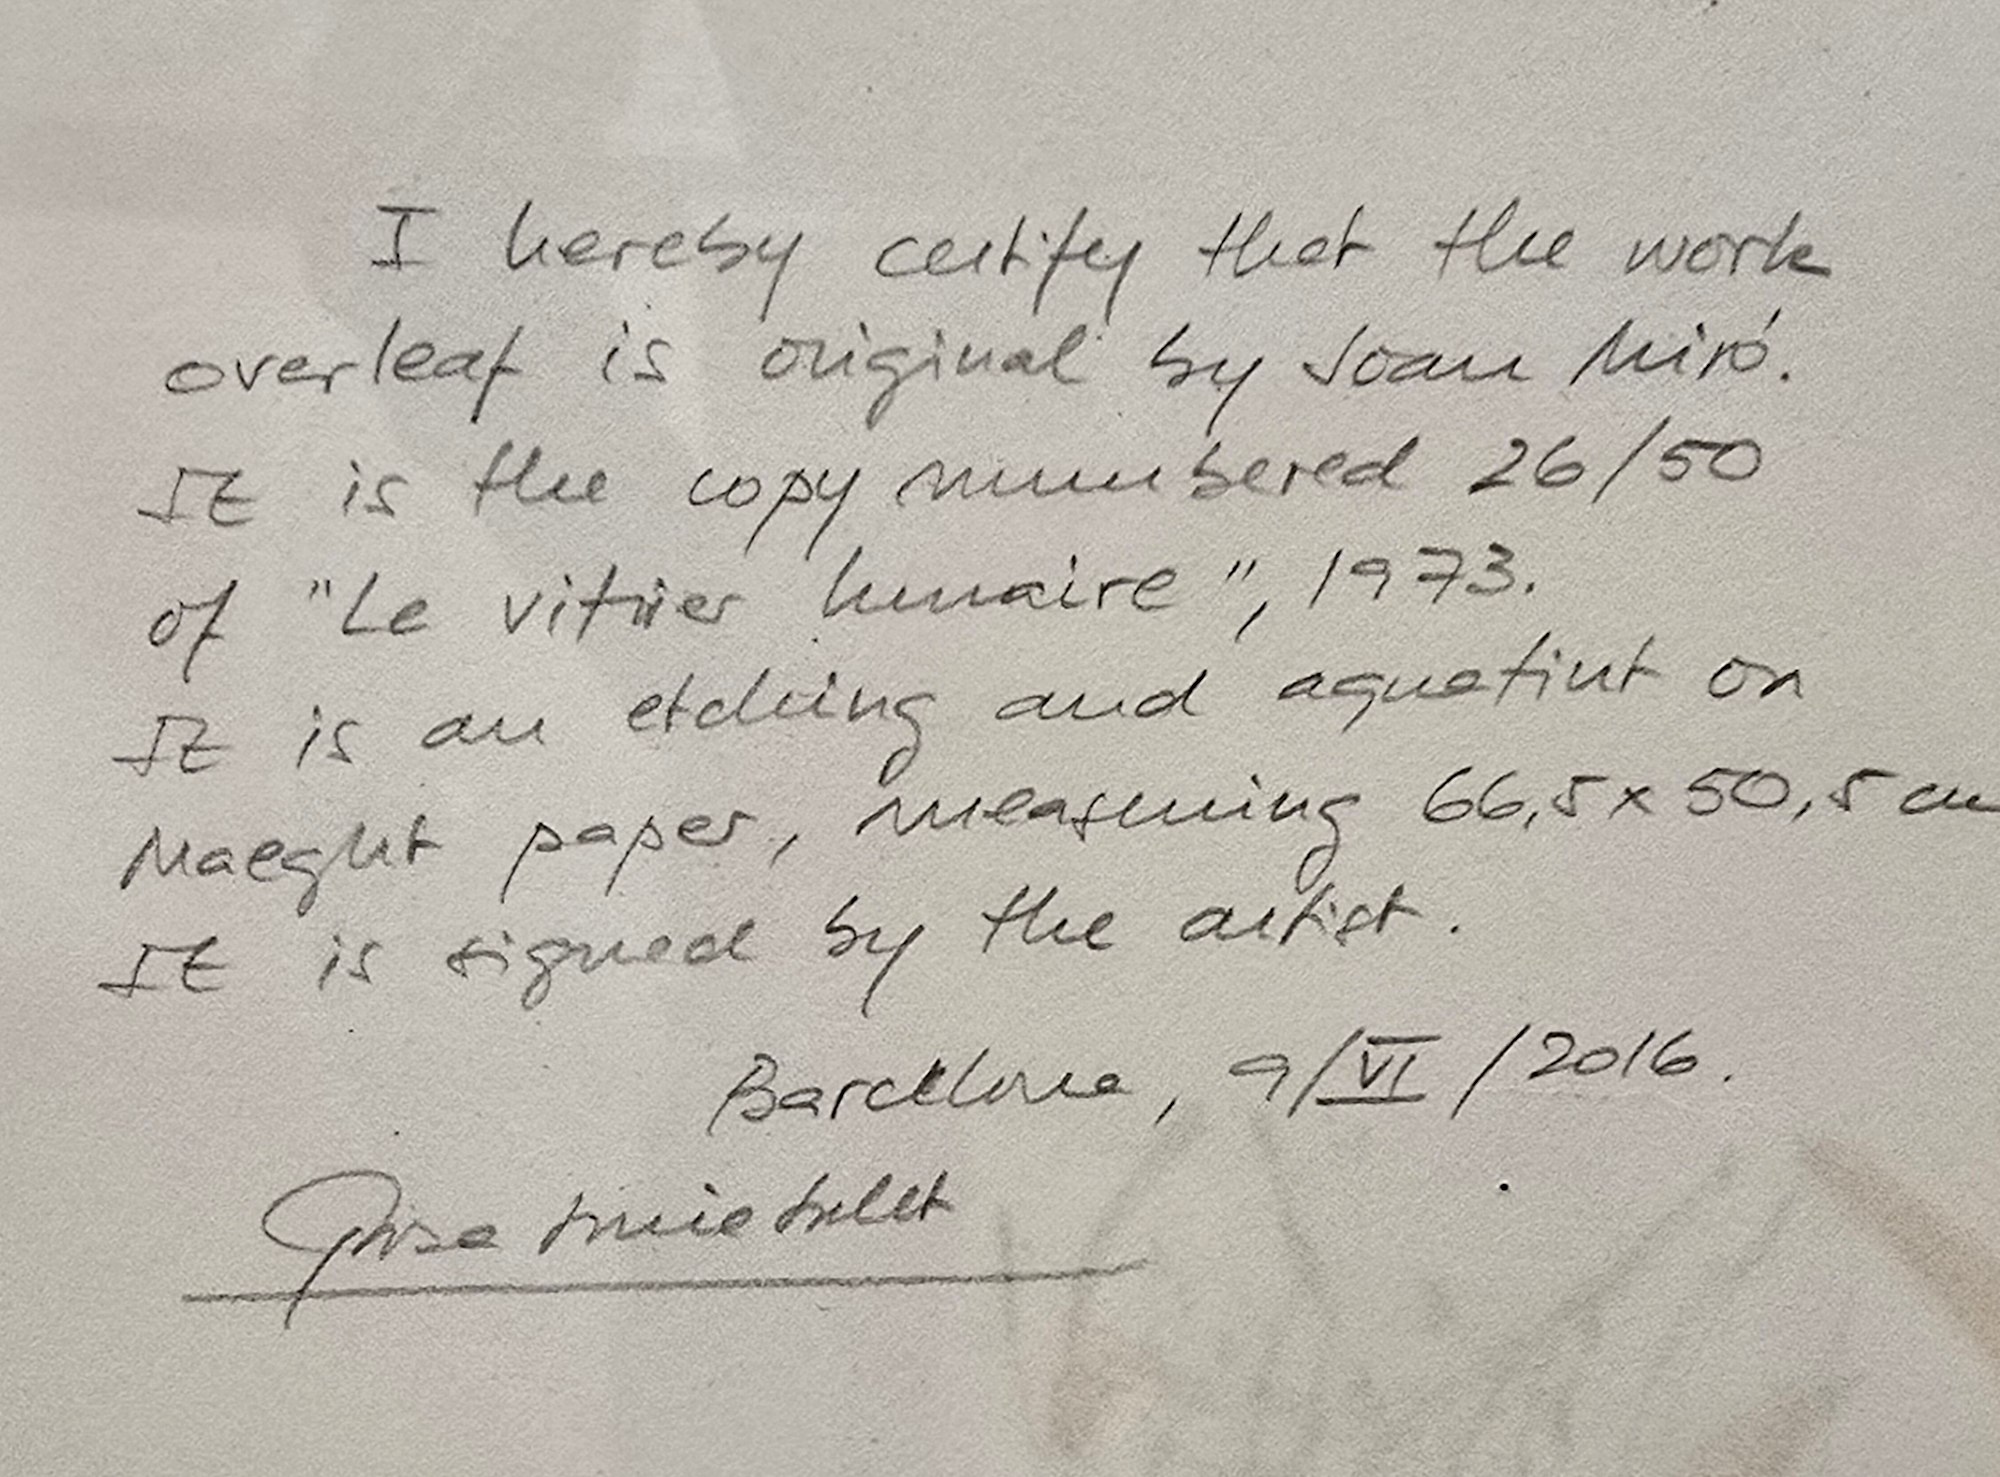 I hereby certify that the work
overleaf is original by Joan Miró.
It is the copy numbered 26/50
of "Le vitrier lunaire", 1973.
It is an etching and aquatint on
Maeght paper, measuring 66,5 x 50,5 cm
It is signed by the artist.
Barcelona, 9/VI/2016.
Rosa Maria Malet